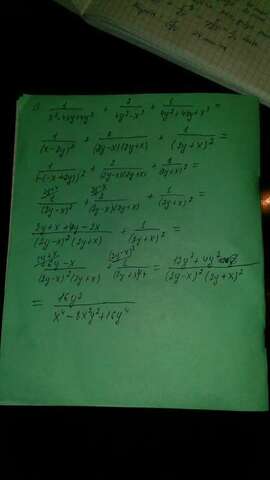 1) 1/(x²-4xy+4y²) + 2/(4y²-x²) + 1/(4y²+4xy+x²) =
1/(x-2y)² + 2/((2y-x)(2y+x)) + 1/(2y+x)² =
1/(-(-x+2y))² + 2/((2y-x)(2y+x)) + 1/(2y+x)² =
1/(2y-x)² + 2/((2y-x)(2y+x)) + 1/(2y+x)² =
(2y+x+4y-2x)/((2y-x)²(2y+x)) + 1/(2y+x)² =
(6y-x)/((2y-x)²(2y+x)) + 1/(2y+x)² = (12y²+4y²)/((2y-x)²(2y+x)²)
= 16y²/(x⁴-8x²y²+16y⁴)